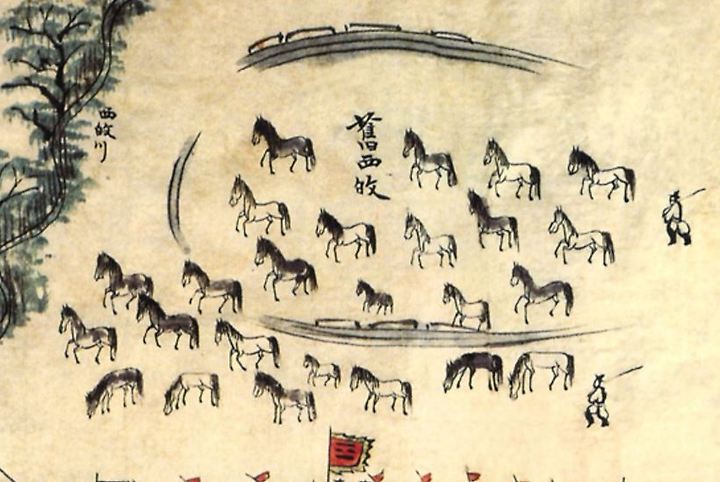 西牧川
舊西牧